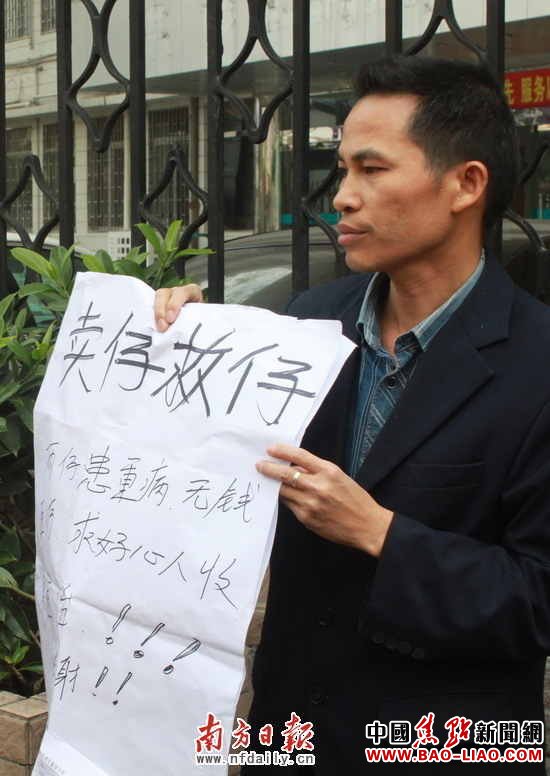 先 服务
卖仔救仔
仔患重病.无钱
求好心人收
!!!
谢!!
南方日报
www.nfdaily.cn
中國焦點新聞網
WWW.BAO-LIAO.COM